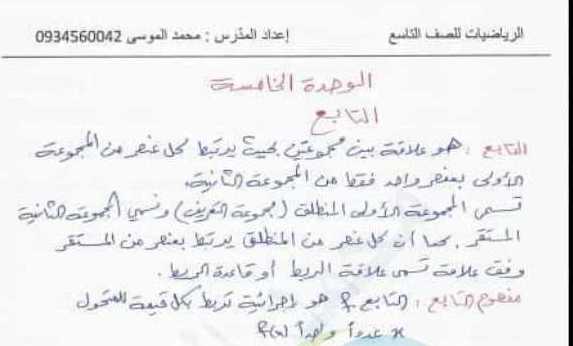 الرياضيات للصف التاسع إعداد المدرس : محمد الموسى 0934560042
الوحدة الخامسة
التابع
التابع : هو علاقة بين مجموعتين بحيث يرتبط كل عنصر من المجموعة
الأولى بعنصر واحد فقط من المجموعة الثانية.
تسمى المجموعة الأولى المنطلق (مجموعة التعريف) ونسمي المجموعة الثانية
المستقر. بما أن كل عنصر من المنطلق يرتبط بعنصر من المستقر
وفق علاقة تسمى علاقة الربط أو قاعدة الربط.
مفهوم التابع : التابع f هو إجرائية تربط بكل قيمة للمتحول
x عدداً واحداً f(x)